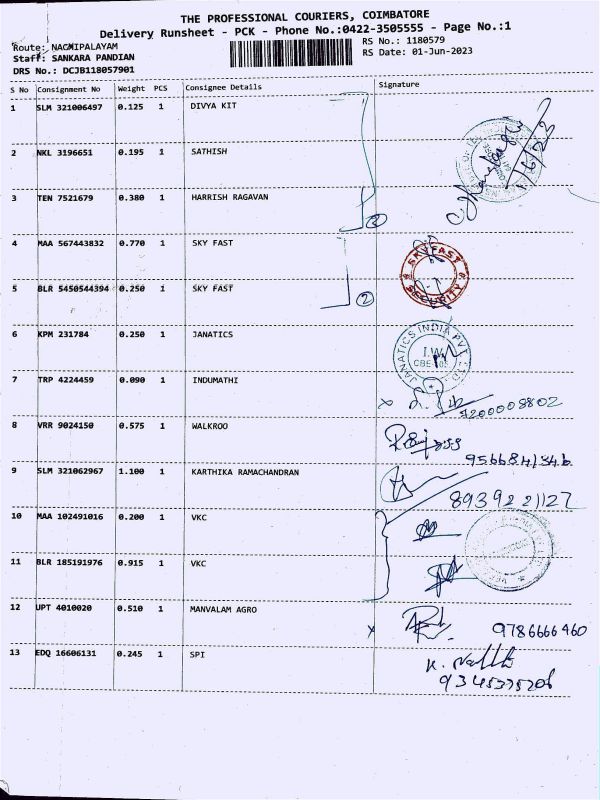 THE PROFESSIONAL COURIERS, COIMBATORE
Delivery Runsheet - PCK - Phone No.:0422-3505555 - Page No.:1
Route: NAGMIPALAYAM RS No.: 1180579
Staff: SANKARA PANDIAN RS Date: 01-Jun-2023
DRS No.: DCJB118057901
S No Consignment No Weight PCS Consignee Details Signature
1 SLM 321006497 0.125 1 DIVYA KIT
2 NKL 3196651 0.195 1 SATHISH 1/6/23
3 TEN 7521679 0.380 1 HARRISH RAGAVAN
4 MAA 567443832 0.770 1 SKY FAST SKYFAST
5 BLR 5450544394 0.250 1 SKY FAST 2 SECURITY
6 KPM 231784 0.250 1 JANATICS JANATICS INDIA PVT LTD
I.W
7 TRP 4224459 0.090 1 INDUMATHI x 9200008802
8 VRR 9024150 0.575 1 WALKROO
9 SLM 321062967 1.100 1 KARTHIKA RAMACHANDRAN
8939221127
10 MAA 102491016 0.200 1 VKC
11 BLR 185191976 0.915 1 VKC
12 UPT 4010020 0.510 1 MANVALAM AGRO
x 9786666460
13 EDQ 16606131 0.245 1 SPI